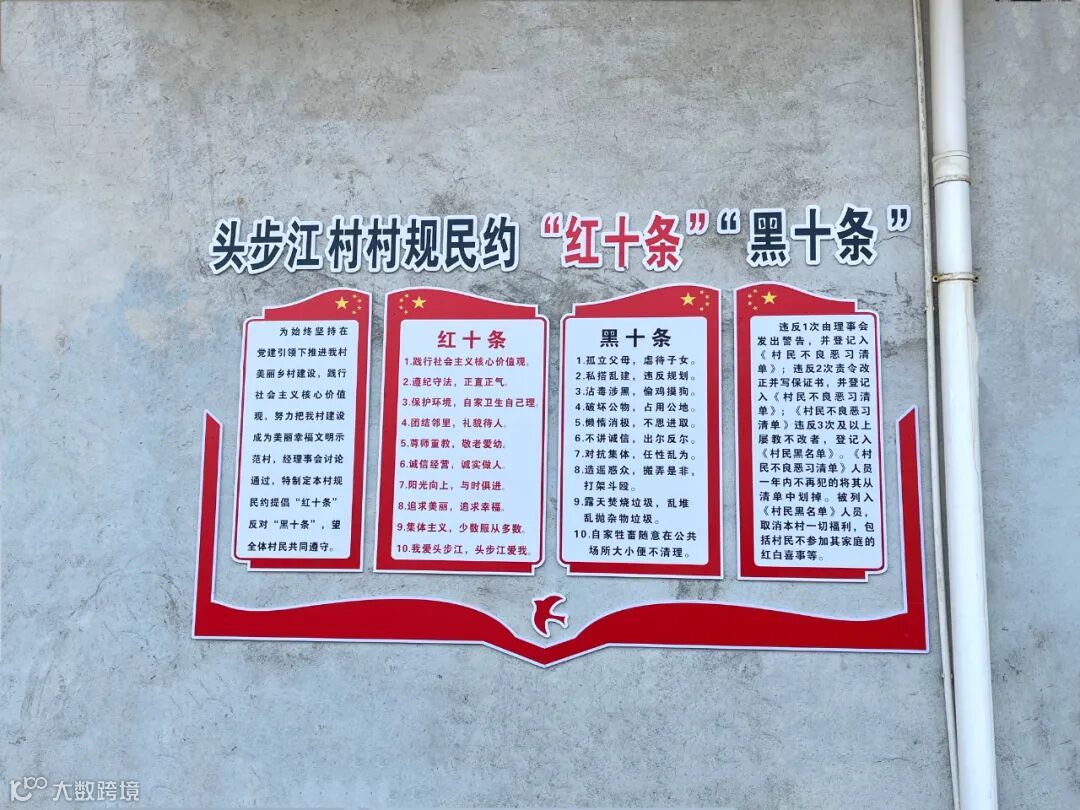 头步江村村规民约 “红十条” “黑十条”
为始终坚持在
党建引领下推进我村
美丽乡村建设，践行
社会主义核心价值
观，努力把我村建设
成为美丽幸福文明示
范村，经理事会讨论
通过，特制定本村规
民约提倡“红十条”
反对“黑十条”，望
全体村民共同遵守。
红十条
1.践行社会主义核心价值观。
2.遵纪守法，正直正气。
3.保护环境，自家卫生自己理。
4.团结邻里，礼貌待人。
5.尊师重教，敬老爱幼。
6.诚信经营，诚实做人。
7.阳光向上，与时俱进。
8.追求美丽，追求幸福。
9.集体主义，少数服从多数。
10.我爱头步江，头步江爱我。
黑十条
1.孤立父母，虐待子女。
2.私搭乱建，违反规划。
3.沾毒涉黑，偷鸡摸狗。
4.破坏公物，占用公地。
5.懒惰消极，不思进取。
6.不讲诚信，出尔反尔。
7.对抗集体，任性乱为。
8.造遥惑众，搬弄是非，
打架斗殴。
9.露天焚烧垃圾，乱堆
乱抛杂物垃圾。
10.自家牲畜随意在公共
场所大小便不清理。
违反1次由理事会
发出警告，并登记入
《村民不良恶习清
单》；违反2次责令改
正并写保证书，并登记
入《村民不良恶习清
单》；《村民不良恶习
清单》违反3次及以上
屡教不改者，登记入
《村民黑名单》。《村
民不良恶习清单》人员
一年内不再犯的将其从
清单中划掉。被列入
《村民黑名单》人员，
取消本村一切福利，包
括村民不参加其家庭的
红白喜事等。
大数跨境